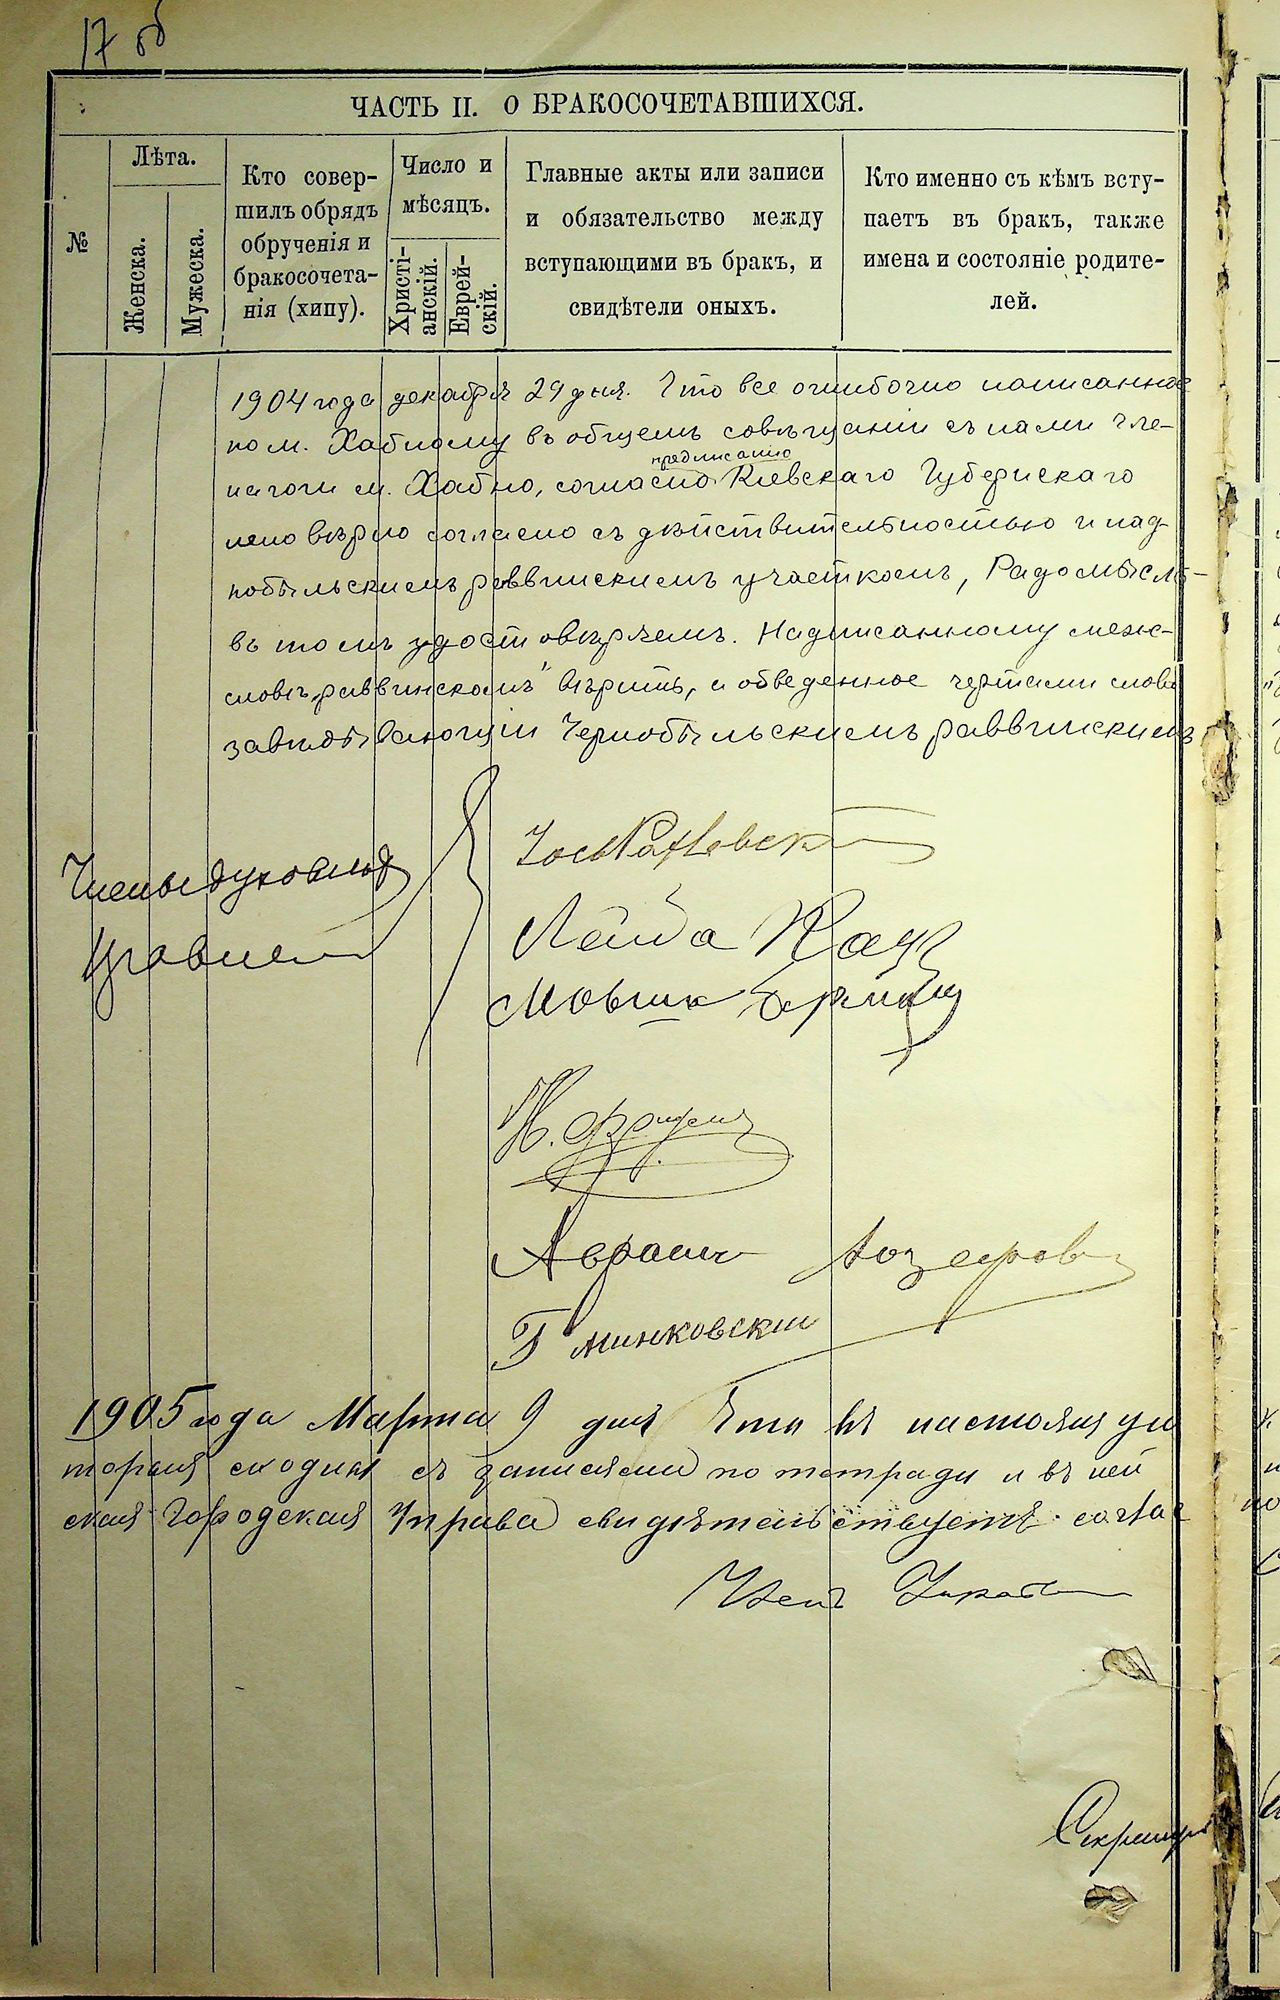 17 об
ЧАСТЬ II. О БРАКОСОЧЕТАВШИХСЯ.
№
Лѣта.
Женска.
Мужеска.
Кто совер-
шилъ обрядъ
обрученія и
бракосочета-
нія (хипу).
Число и
мѣсяцъ.
Христі-
анскій.
Еврей-
скій.
Главные акты или записи
и обязательство между
вступающими въ бракъ, и
свидѣтели оныхъ.
Кто именно съ кѣмъ всту-
паетъ въ бракъ, также
имена и состояніе родите-
лей.
1904 года декабря 29 дня. Что все ошибочно написанное
по м. Хабному въ общемъ совѣщаніи съ нами чле-
предписанію
нагоги м. Хабно, согласно Кіевскаго Губернскаго
лено вѣрно согласно съ дѣйствительностью и над-
нобыльскимъ раввинскимъ участкомъ, Радомысль-
въ томъ удостовѣряемъ. Надписанному меж-
словѣ „раввинскомъ" вѣрить, а обведенное чертами слово
завѣдывающій Чернобыльскимъ раввинскимъ
Члены духовнаго
Правленія
Лейба Кац
Мовша
Н.
Авраам
Г Минковскій
1905 года Марта 9 дня Что въ настоящу
торыя сходны съ записями по тетради и въ ней
ская Городская Управа свидѣтельствуетъ. соглас
Членъ Управы
Секретарь